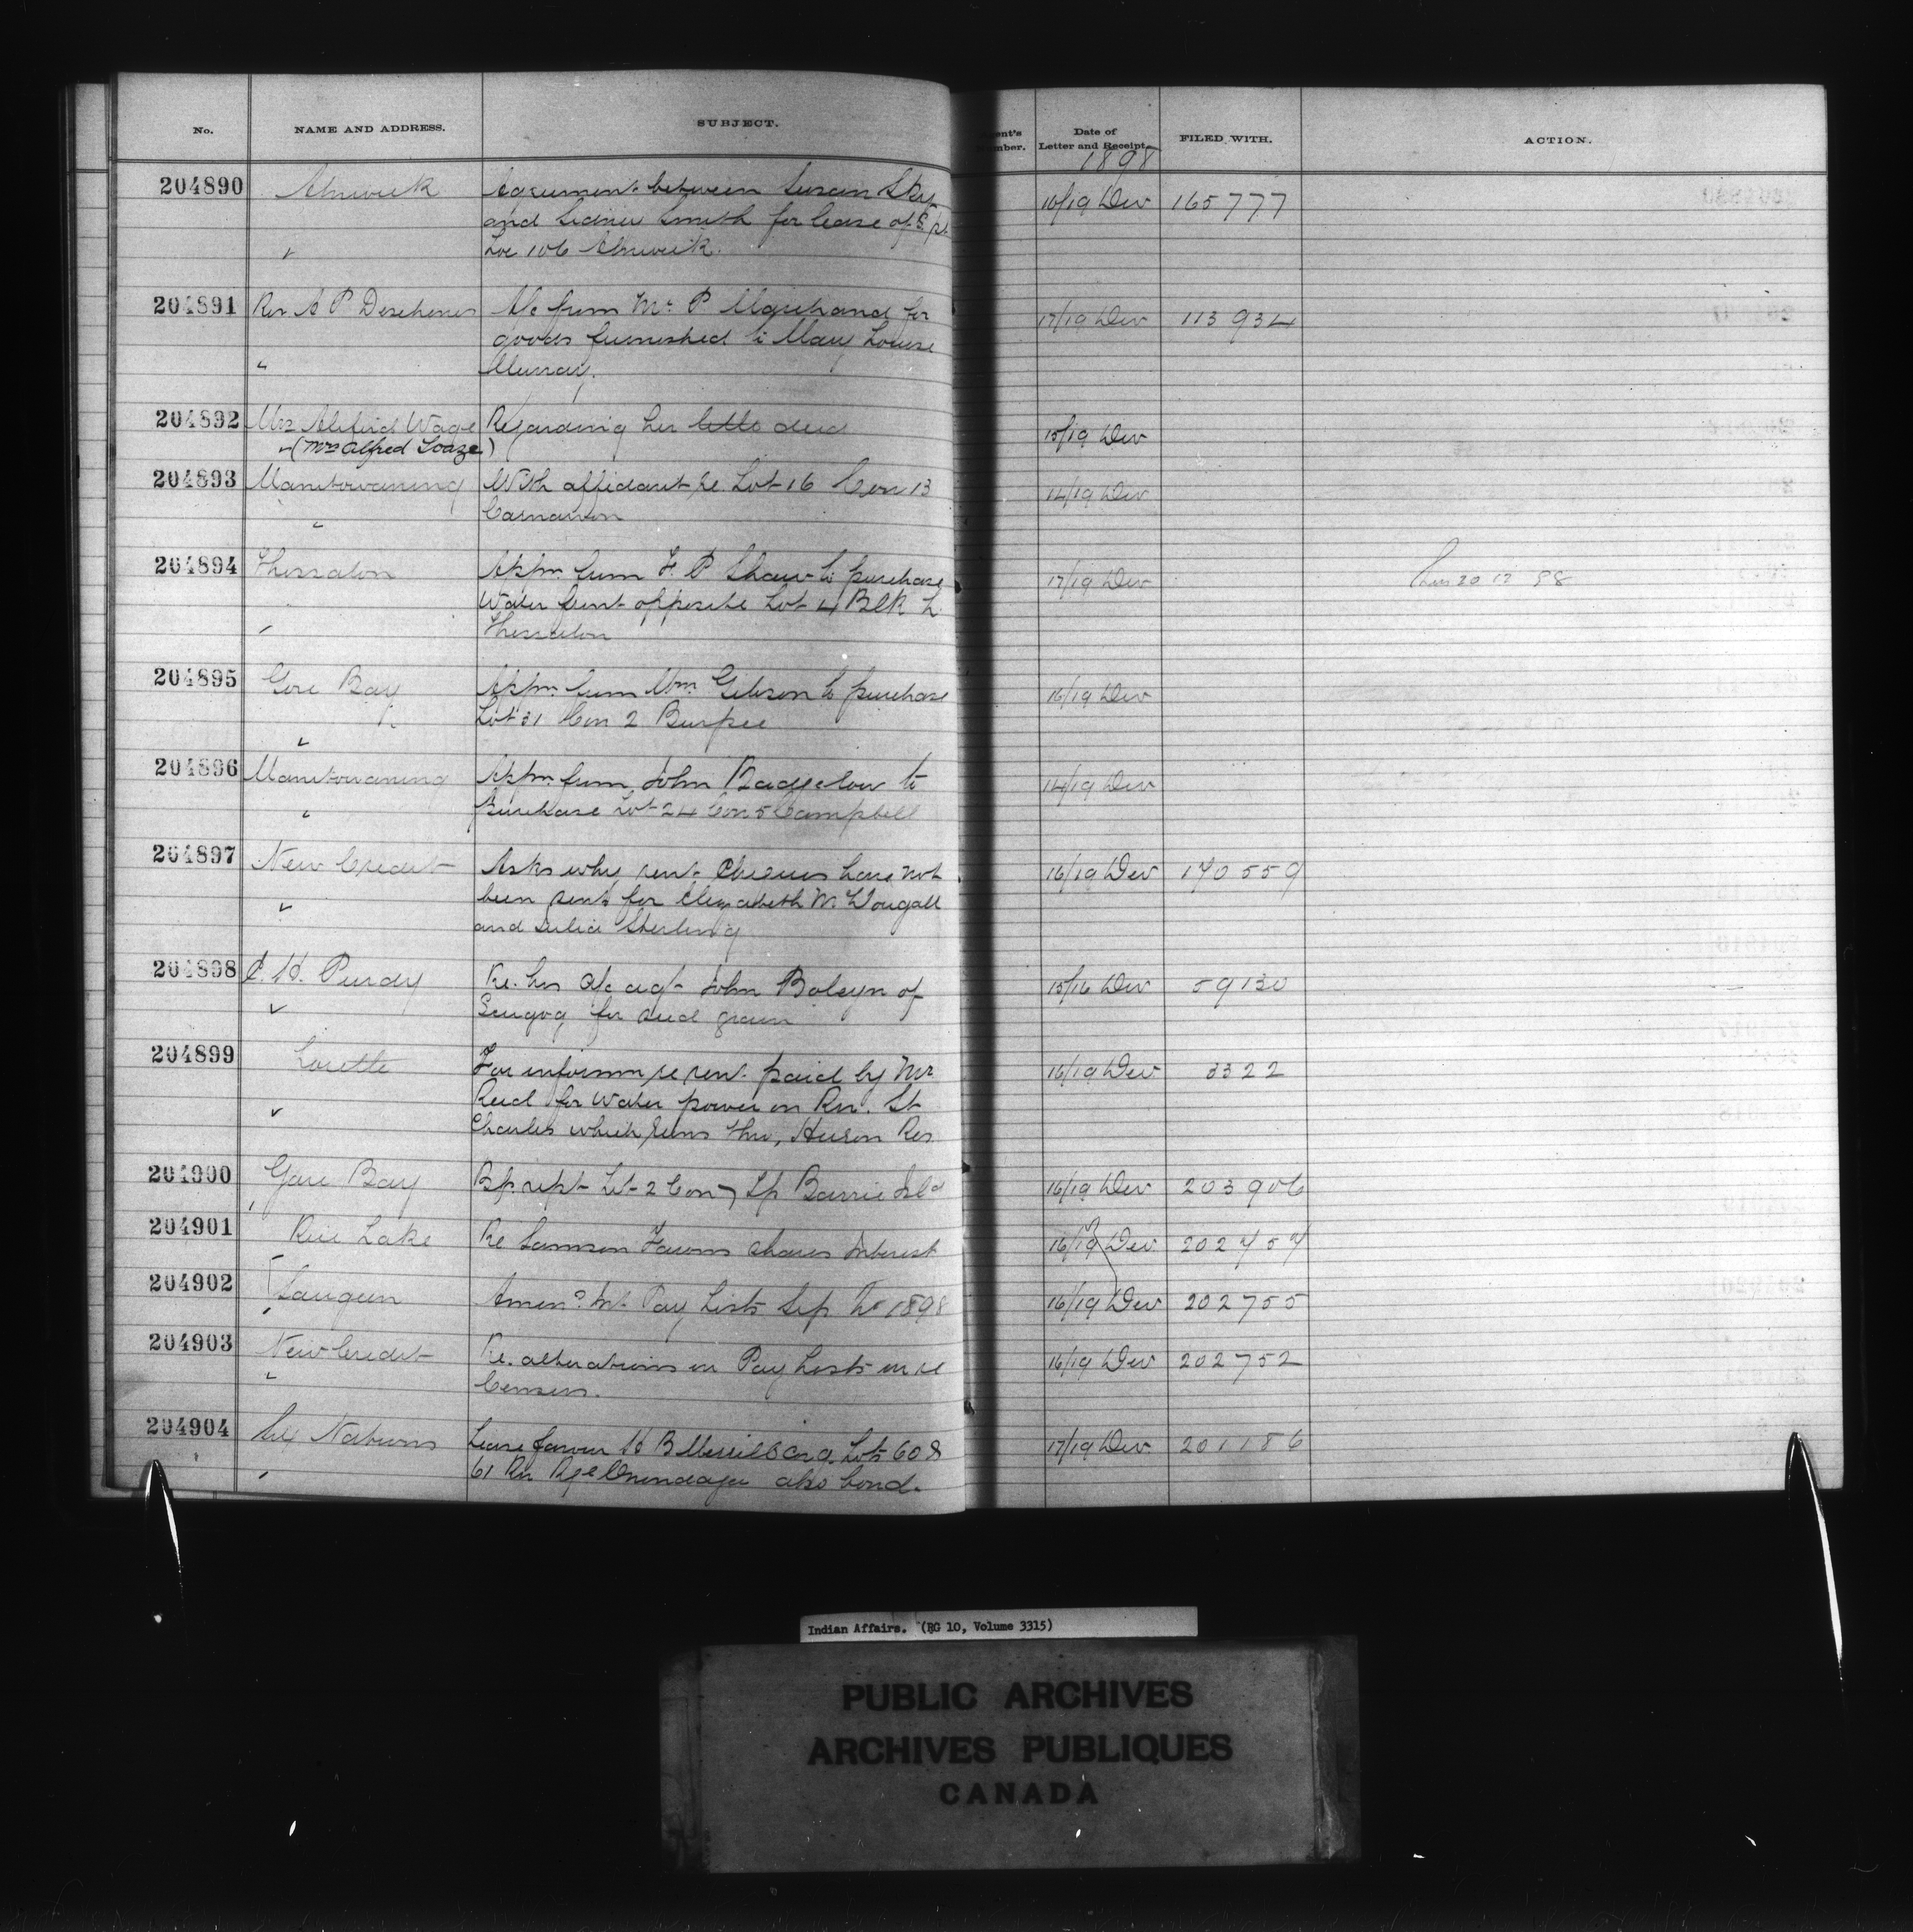 No. NAME AND ADDRESS. SUBJECT. Date of Letter and Receipt. FILED WITH. ACTION.
1898
204890 Alnwick Agreement between Susan Sky 16/19 Dec 165777
and Sidney Smith for lease of S. pt.
" Lot 106 Alnwick.
204891 Rev A P Deschenes A/c from Mr. P Marchand for 17/19 Dec 113934
goods furnished to Mary Louise
" Murray.
204892 Mrs Alfred Wage Regarding her little deed 15/19 Dec
(Mrs Alfred Loaze)
204893 Manitowaning With affidavit re. Lot 16 Con 13 14/19 Dec
" Carnarvon
204894 Thessalon Appn. from F. P Shaw to purchase 17/19 Dec 20 12 98
Water front opposite Lot 4 Blk L.
" Thessalon
204895 Gore Bay Appn. from Wm. Gibson to purchase 16/19 Dec
Lot 31 Con 2 Burpee
"
204896 Manitowaning Appn. from John Badgelow to 14/19 Dec
" Purchase Lot 24 Con 5 Campbell
204897 New Credit Asks why rent Cheques have not 16/19 Dec 170559
" been sent for Elizabeth McDougall
and Julia Sterling
204898 C. H. Purdy Re. his a/c agt John Bolsyn of 15/16 Dec 59130
" Scugog for seed grain
204899 Lorette For informn re rent paid by Mr 16/19 Dec 3322
Reid for Water power on Riv. St
" Charles which runs thro, Huron Res
204900 Gore Bay Bp. rept Lot 2 Con 7 Tp Barrie Isld 16/19 Dec 203906
"
204901 Rice Lake Re Samson Fawns shares Interest 16/19 Dec 202757
"
204902 Saugeen Amend. Int. Pay Lists Sep Qr 1898 16/19 Dec 202755
"
204903 New Credit Re. alterations in Pay Lists in re 16/19 Dec 202752
" Census.
204904 Six Nations Lease favour H B Merrill Con. Lots 60 & 17/19 Dec 201186
" 61 Riv Rge Onondaga also bond.
Indian Affairs. (RG 10, Volume 3315)
PUBLIC ARCHIVES
ARCHIVES PUBLIQUES
CANADA